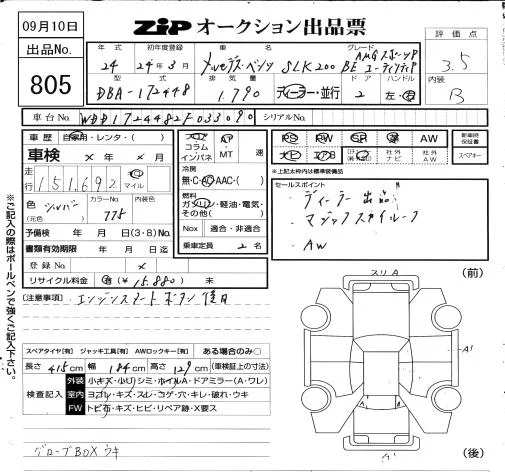 09月10日
ZIP オークション出品票
評価点
3.5
内装
B
出品No.
805
年式 初年度登録 車名 グレード
24 24年3月 メルセデス・ベンツ SLK200 BE AMGスポーツP
型式 排気量 ドア ハンドル
DBA-172448 1.790 ディーラー・並行 2 左・右
車台No. WDD1724482F033090 シリアルNo.
車歴 自家用・レンタ・( )
車検 × 年 × 月
走行 151,692 km マイル
色 シルバー カラーNo. 775 内装色
(元色)
予備検 年 月 日(3・8)No.
書類有効期限 年 月 日迄
登録No. ×
リサイクル料金 有(¥15.880) 未
エアロ AT
コラム
インパネ MT 速
冷房
無・C・AC・AAC・( )
燃料
ガソリン・軽油・電気・
その他( )
Nox 適合・非適合
乗車定員 2名
PS PW SR 革 AW
ナビ エアB TV 社外ナビ 社外AV
新車時保証書
スペアキー
*上記太枠内は標準装備品
セールスポイント
・ディーラー出品
・マジックスカイルーフ
・AW
(注意事項) エンジンスタートボタン後日
スペアタイヤ[有] ジャッキ工具[有] AWロックキー[有] ある場合のみ○
長さ 415cm 幅 184cm 高さ 129cm (車検証上の寸法)
検査記入
外装 小キズ・小U・シミ・ホイルA・ドアミラー(A・ワレ)
室内 ヨゴレ・キズ・スレ・コゲ・穴・キレ・破れ・ウキ
FW トビ石・キズ・ヒビ・リペア跡・X要ス
グローブBOXウキ
※ご記入の際はボールペンで強くご記入下さい。
スリA
(前)
A1
(後)